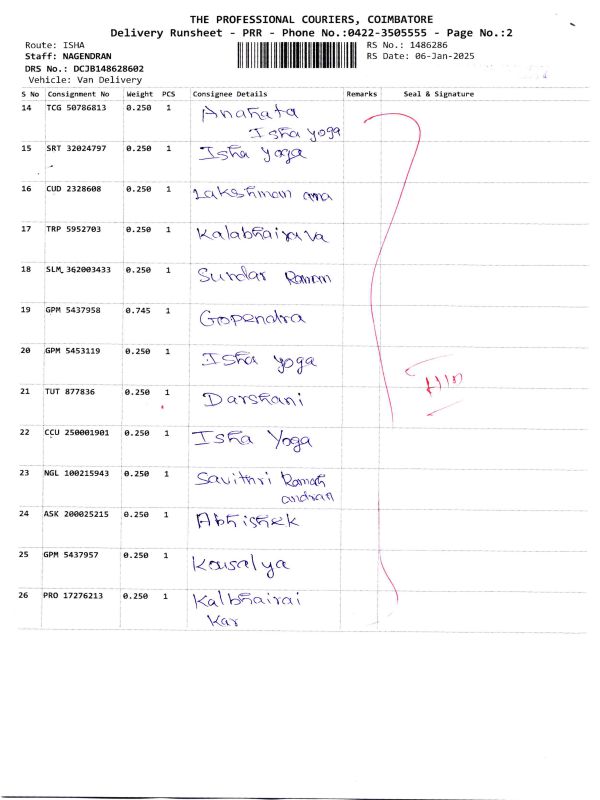 THE PROFESSIONAL COURIERS, COIMBATORE
Delivery Runsheet - PRR - Phone No.:0422-3505555 - Page No.:2
Route: ISHA RS No.: 1486286
Staff: NAGENDRAN RS Date: 06-Jan-2025
DRS No.: DCJB148628602
Vehicle: Van Delivery
S No Consignment No Weight PCS Consignee Details Remarks Seal & Signature
14 TCG 50786813 0.250 1 Anahata
Isha yoga
15 SRT 32024797 0.250 1 Isha yoga
16 CUD 2328608 0.250 1 Lakshmam ana
17 TRP 5952703 0.250 1 Kalabhairava
18 SLM 362003433 0.250 1 Sundar Raman
19 GPM 5437958 0.745 1 Gopendra
20 GPM 5453119 0.250 1 Isha yoga
21 TUT 877836 0.250 1 Darshani
22 CCU 250001901 0.250 1 Isha Yoga
23 NGL 100215943 0.250 1 Savithri Ramach
andran
24 ASK 200025215 0.250 1 Abhishek
25 GPM 5437957 0.250 1 Kousalya
26 PRO 17276213 0.250 1 Kalbhairai
Kar